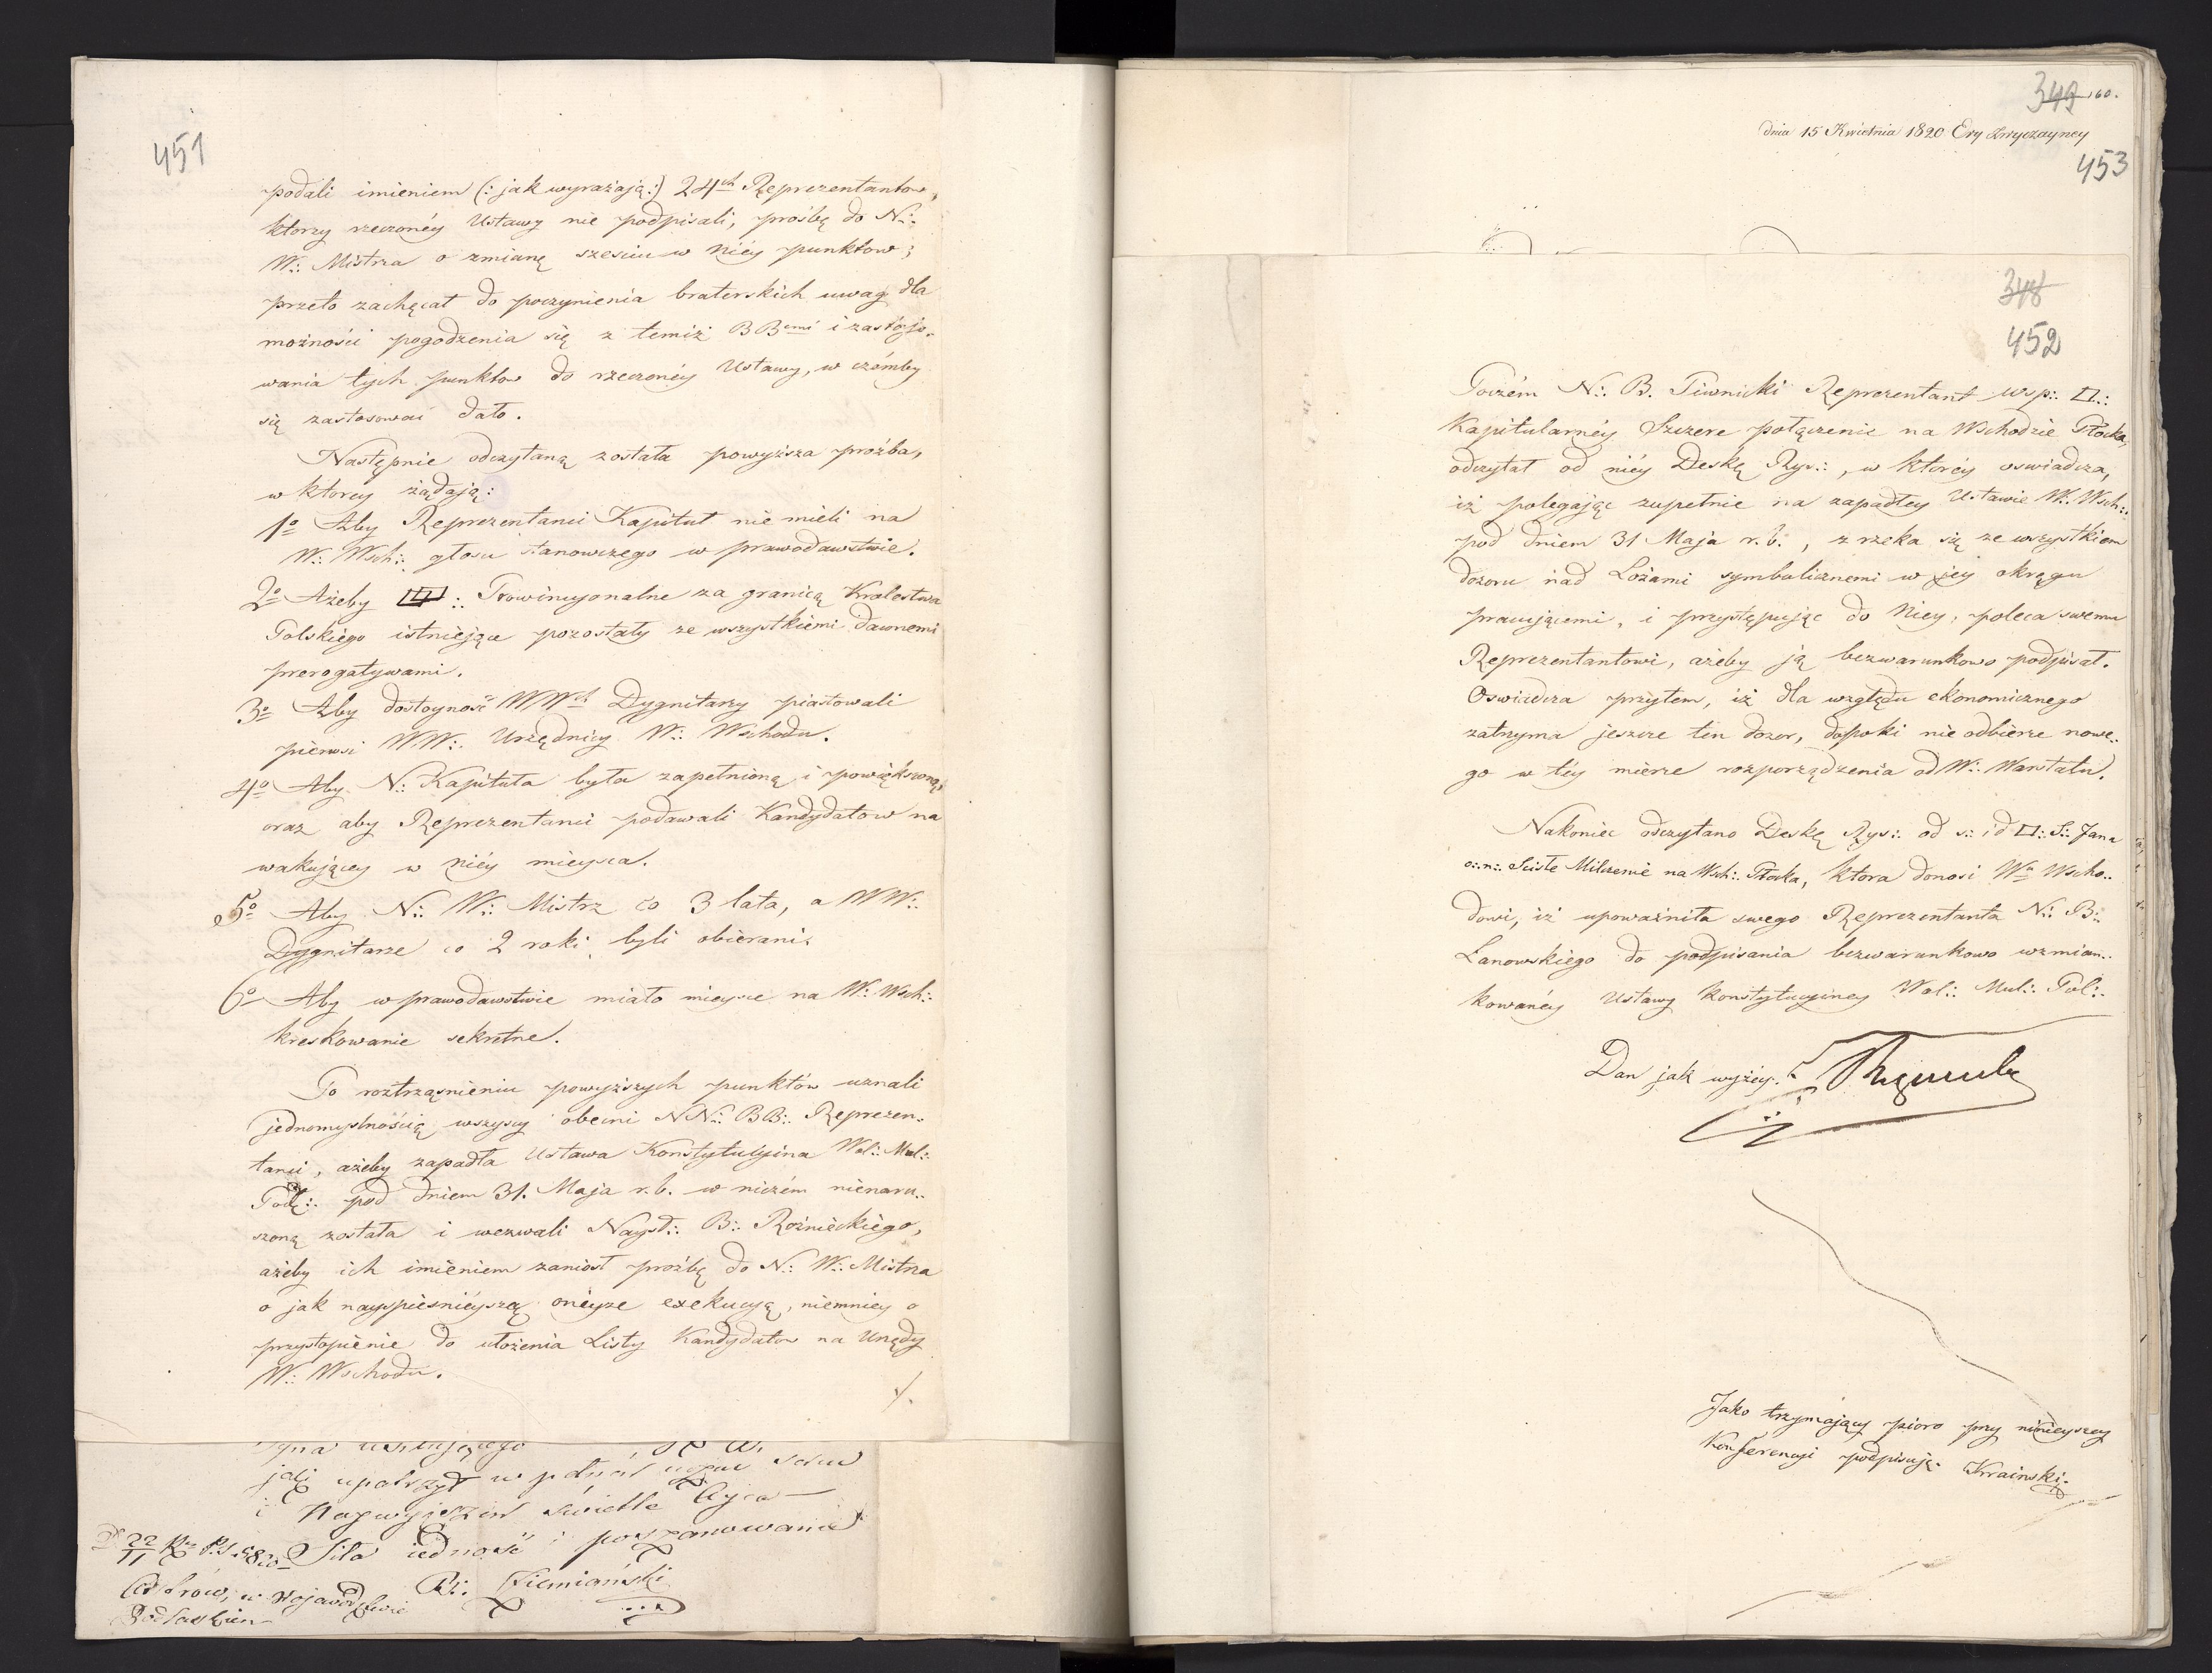 451
podali imieniem (: jak wyrażają :) 24ch Reprezentantow,
ktorzy rzeczonéy Ustawy nie podpisali, prośbę do N.:
W.: Mistrza o zmianę sześciu w Niéy punktow;
przeto zachęcał do poczynienia braterskich uwag dla
możności pogodzenia się z temiż BBemi i zastoso-
wania tych punktow do rzeczonéy Ustawy, w czémby
się zastosować dało.
Następnie odczytaną została powyższa proźba,
w ktorey żądają:
1o Aby Reprezentanci Kapituł nie mieli na
W.: Wsch.: głosu stanowczego w prawodawstwie.
2o Ażeby □□.: Prowincyonalne za granicą Krolestwa
Polskiego istniejące pozostały ze wszystkiémi dawnemi
prerogatywami.
3o Aby dostoyność WWch Dygnitarzy piastowali
piérwsi WW.: Urzędnicy W.: Wschodu.
4o Aby N.: Kapituła była zapełnioną i powiększoną,
oraz aby Reprezentanci podawali Kandydatow na
wakującey w niéy mieysca.
5o Aby N.: W.: Mistrz co 3 lata, a WW.:
Dygnitarze co 2 roki byli obierani.
6o Aby w prawodawstwie miało mieysce na W.: Wsch.:
kreskowanie sekretne.
Po roztrząśnieniu powyższych punktów uznali
jednomyślnością wszyscy obecni NN.: BB.: Reprezen-
tanci, ażeby zapadła Ustawa Konstytucyina Wol.: Mul.:
Pol.: pod dniem 31. Maja r. b. w niczém nienaru-
szoną została i wezwali Nayd.: B.: Rożnieckiégo,
ażeby ich imiéniem zaniosł proźbę do N.: W.: Mistrza
o jak nayspieszniéyszą onéyże exekucyą, niemniey o
przystąpienie do ułożenia Listy Kandydatow na Urzędy
W.: Wschodu.
./.
jaki upatrzył w
i Naywyższem świetle
22/11
Siła iedność i poszanowanie
w Wojewodztwie
Ziemiański
Podlaskiem
349 160.
dnia 15 Kwietnia 1820 Ery Zwyczayney
453
348
452
Poczém N.: B. Piwnicki Reprezentant Wsp.: □.:
Kapitularnéy Szczere połączenie na Wschodzie Płocka,
odczytał od niéy Deskę Rys.:, w którey oswiadcza,
iż polegając zupełnie na zapadłey Ustawie W.: Wsch.:
pod dniem 31 Maja r. b., zrzeka się ze wszystkiem
dozoru nad Lożami symbolicznemi w jey okręgu
pracującemi, i przystępując do Niey, poleca swemu
Reprezentantowi, ażeby ją bezwarunkowo podpisał.
Oswiadcza przytem, iż dla względu ekonomicznego
zatrzyma jeszcze ten dozor, dopoki nie odbierze nowe-
go w téy mierze rozporządzenia od W.: Warstatu.
Nakoniec odczytano Deskę Rys.: od s.: i d □.: S.: Jana
o.: n.: Scisłe Milczenie na Wsch.: Płocka, ktora donosi Wu Wscho-
dowi, iż upoważniła swego Reprezentanta N.: B.:
Lanowskiego do podpisania bezwarunkowo wzmian-
kowanéy Ustawy konstytucyiney Wol.: Mul.: Pol.:
Dan jak wyżey.
Jako trzymający pioro przy ninieyszey
Konferencyi podpisuję. Krainski.